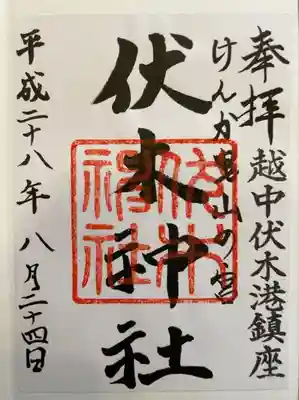 奉拝
越中伏木港鎮座
けんか山の宮
伏木神社
伏木神社
平成二十八年八月二十四日